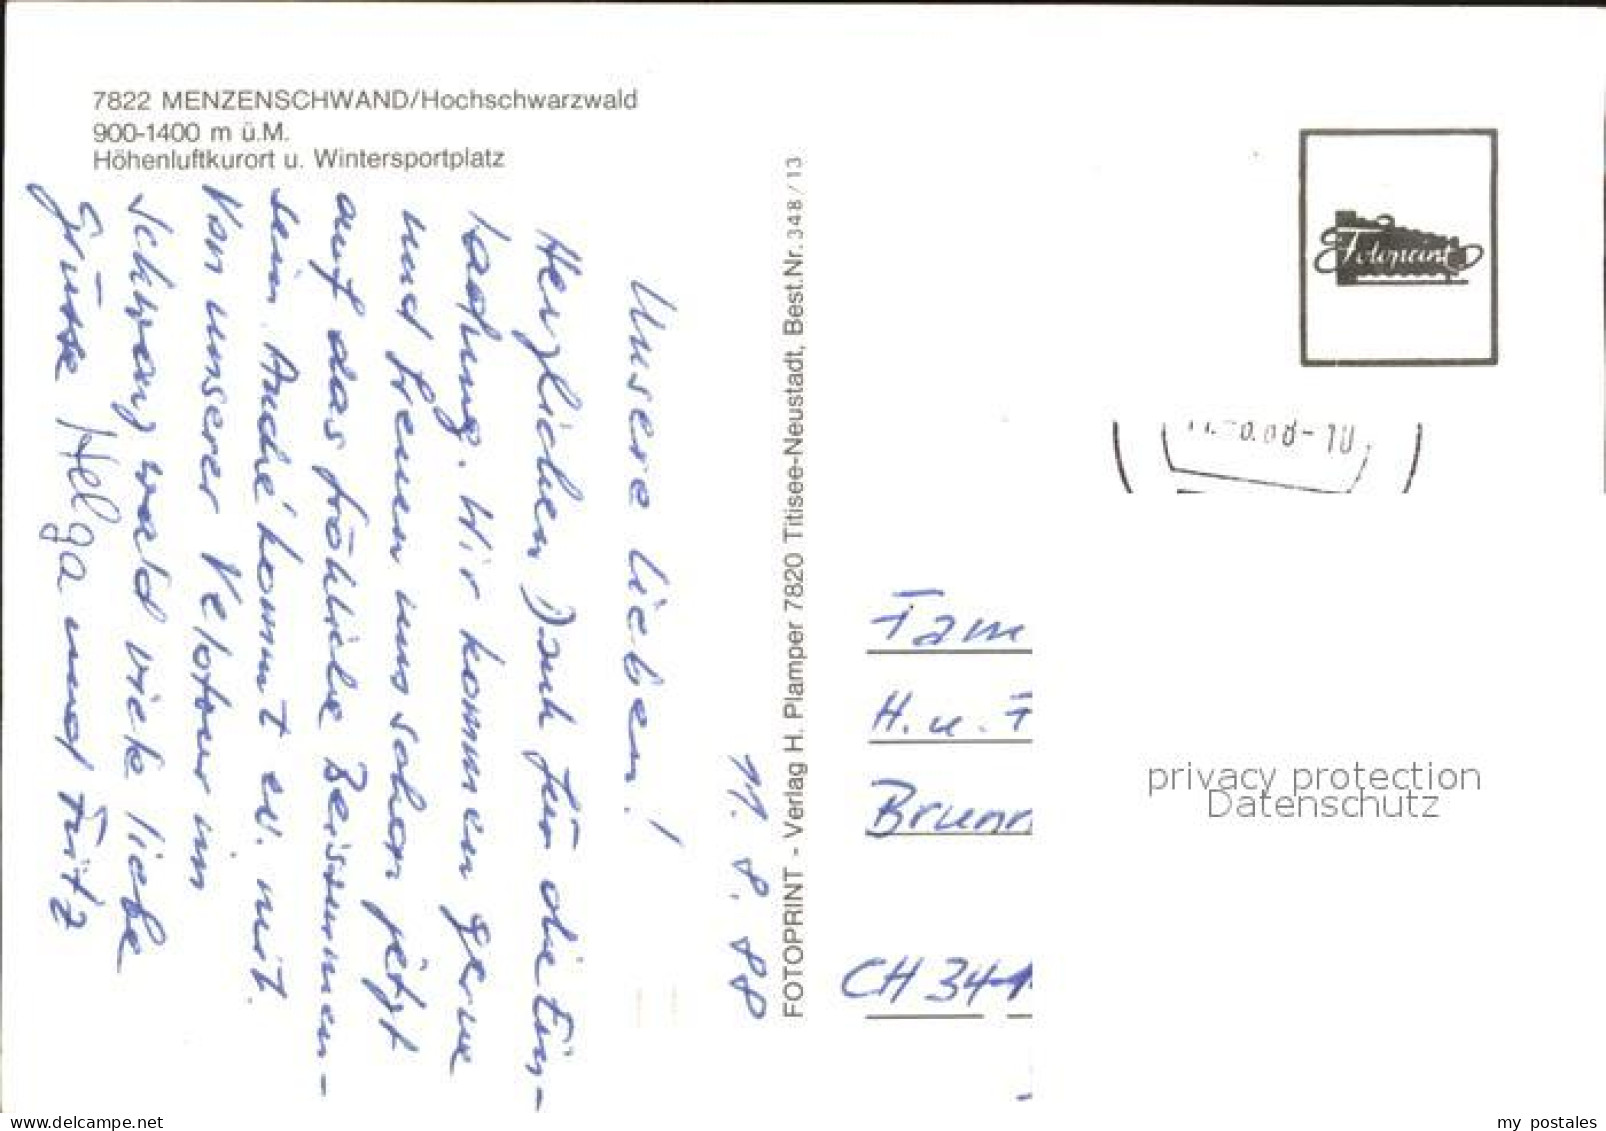 7822 MENZENSCHWAND/Hochschwarzwald
900-1400 m ü.M.
Höhenluftkurort u. Wintersportplatz
11. 8. 88
Unsere Lieben!
Herzlichen Dank für die Ein-
ladung. Wir kommen gerne
und freuen uns schon jetzt
auf das fröhliche Beisammen-
sein. André kommt ev. mit.
Von unserer Velotour im
Schwarzwald viele liebe
Grüsse Helga und Fritz
FOTOPRINT - Verlag H. Plamper 7820 Titisee-Neustadt, Best.Nr. 348/13
Fotoprint
Fam
H. u. F
Brunn
CH 34
privacy protection
Datenschutz
my postales
delcampe.net